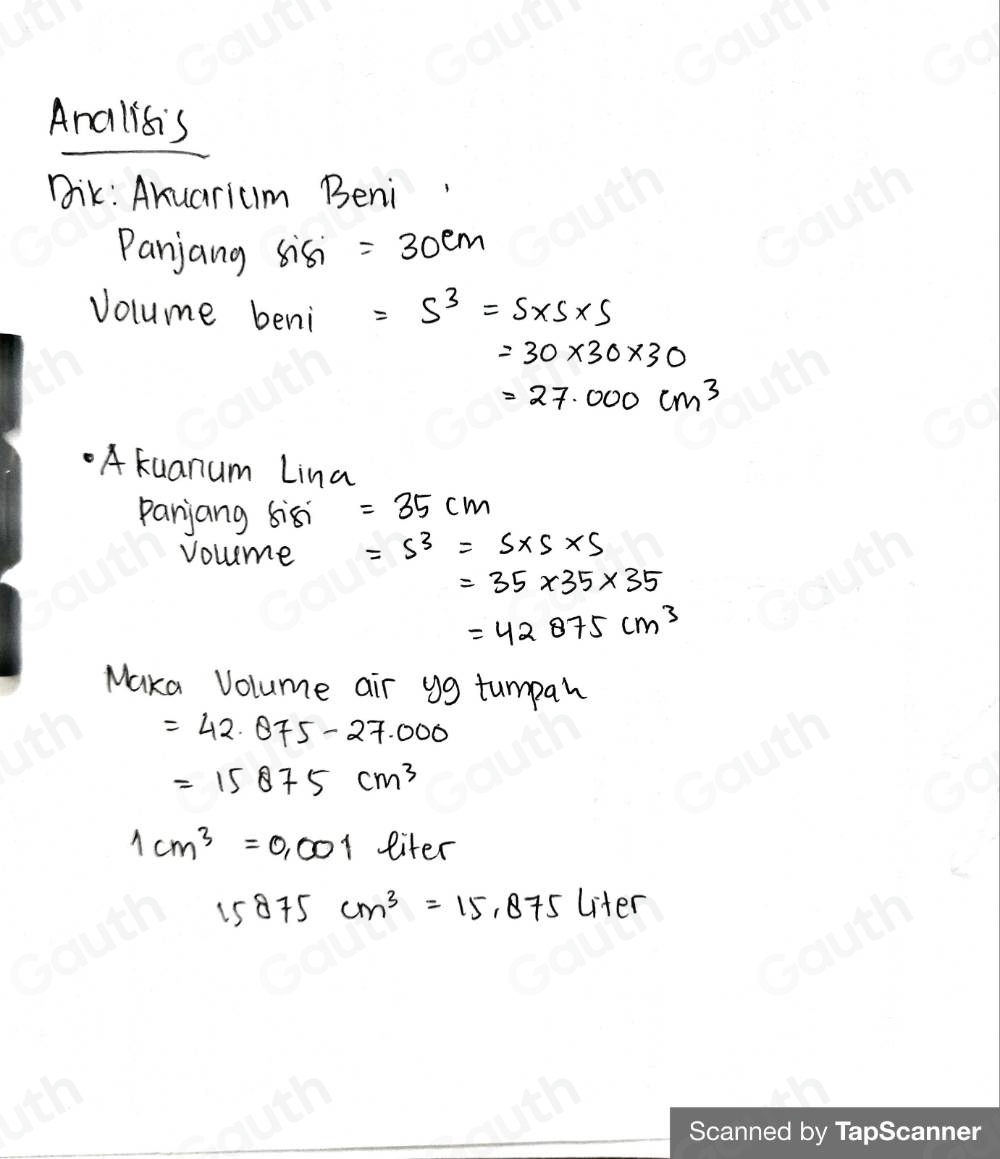 Analisis
Dik: Akuarium Beni
Panjang sisi = 30 cm
Volume beni = S³ = S×S×S
= 30×30×30
= 27.000 cm³
• Akuarium Lina
panjang sisi = 35 cm
Volume = s³ = s×s×s
= 35×35×35
= 42 875 cm³
Maka Volume air yg tumpah
= 42.875 - 27.000
= 15 875 cm³
1 cm³ = 0,001 liter
15875 cm³ = 15,875 Liter
Scanned by TapScanner
Gauth